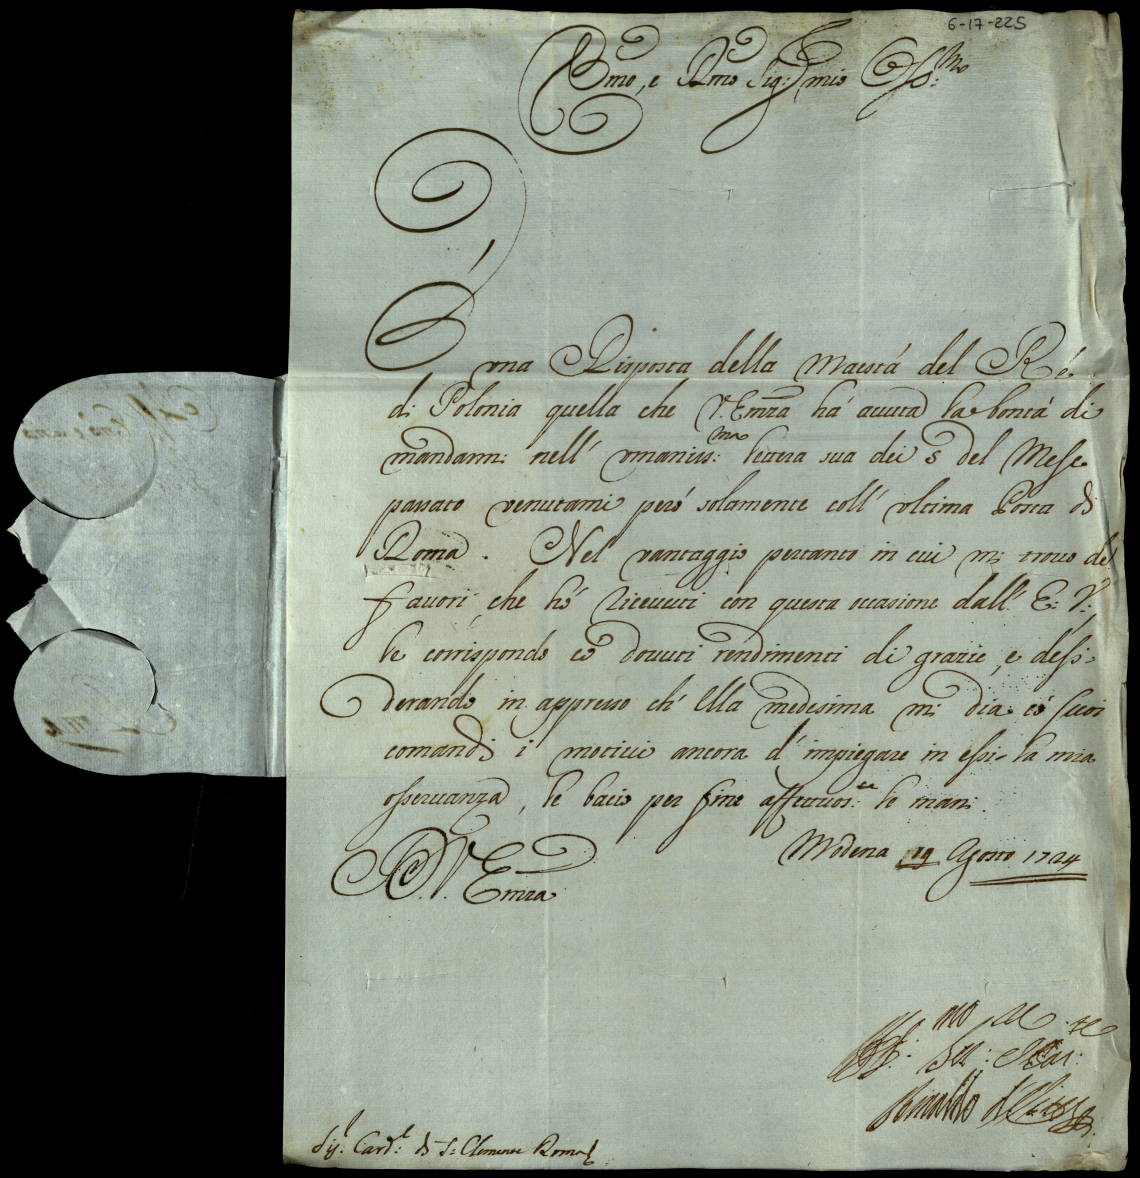 6-17-225
Emo, e Rmo Sig: mio Oss:mo
È una Risposta della Maestà del Rè
di Polonia quella che V. Emza hà avuta la bontà di
mandarmi nell' umaniss:ma lettera sua dei 5 del Mese
passato venutami però solamente coll' ultima Posta di
Roma. Nel vantaggio pertanto in cui mi trovo de'
favori, che hò ricevuti con questa occasione dall' E: V:
le corrispondo co' dovuti rendimenti di grazie, e desi-
derando in appresso ch' Ella medesima mi dia co' suoi
comandi i motivi ancora d' impiegare in essi la mia
osservanza, le bacio per fine affettuos.te le mani.
Modena 19 Agosto 1724
D. V. Emza
Aff:mo
Ser: 
Rinaldo d'Este
Sig.r Card:le di S: Clemente Roma